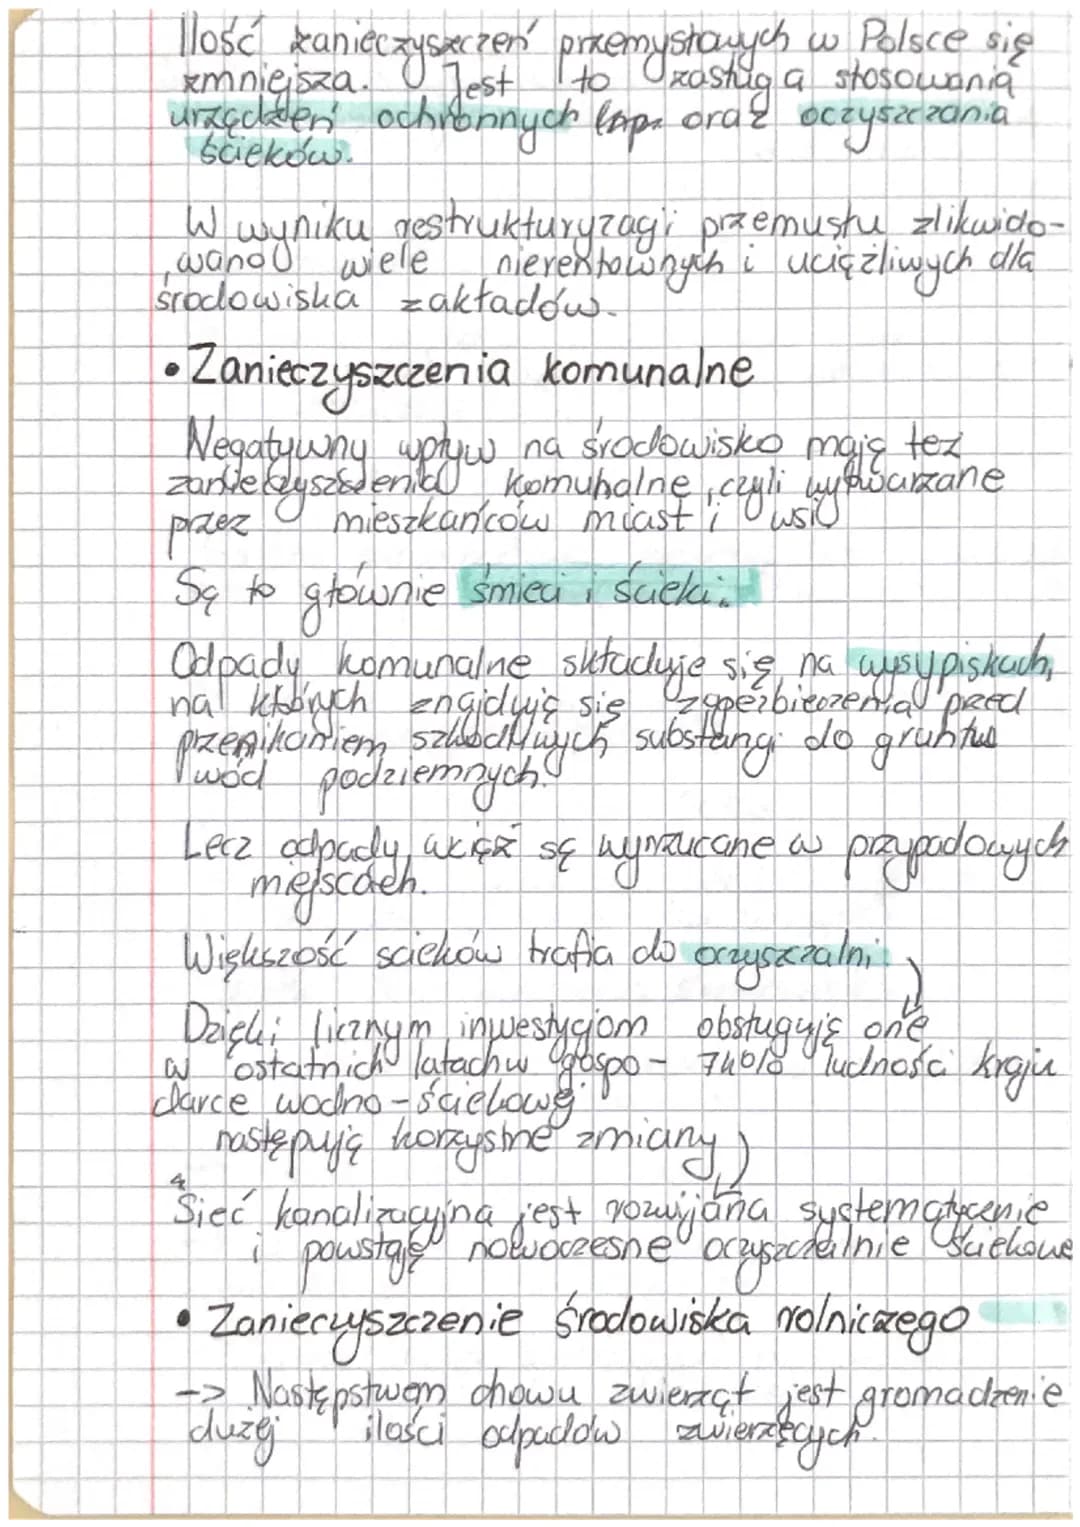 Ilość zanieczyszczeń przemysłowych w Polsce się
zmniejsza. Jest to zasługa stosowania
urządzeń ochronnych oraz oczyszczania
ścieków.
W wyniku restrukturyzacji przemusłu zlikwido-
wano wiele nierentownych i uciążliwych dla
środowiska zakładów.
• Zanieczyszczenia komunalne
Negatywny wpływ na środowisko mają też
zanieczyszczenia komunalne, czyli wytwarzane
przez mieszkańców miast i wsi
Są to głównie śmieci i ścieki.
Odpady komunalne składuje się na wysypiskach,
na których znajdują się zapezbieczenia przed
przenikaniem szkodliwych substancji do gruntu
wód podziemnych.
Lecz odpady wciąż są wyrzucane w przypadowych
miejscach.
Większość scieków trafia do oczyszczalni
Dzięki licznym inwestycjom obsługują one
w ostatnich latach w gospo- 74% ludności kraju
darce wodno-ściekowej
następują korzystne zmiany
Sieć kanalizacyjna jest rozwijana systematycznie
i powstają nowoczesne oczyszczalnie ściekowe
• Zanieczyszczenie środowiska rolniczego
-> Następstwem chowu zwierząt jest gromadzenie
dużej ilości odpadów zwierzęcych.